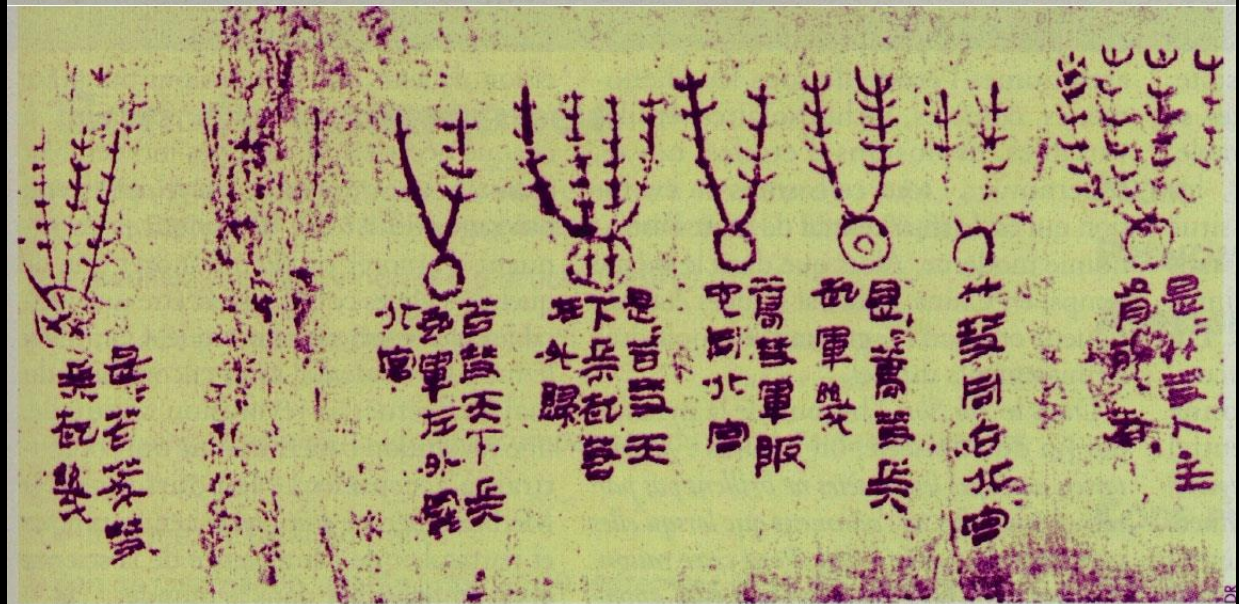 是〻竹彗人主
有死者
竹彗同占北宮
是〻蒿彗兵
起軍幾
蒿彗軍阪
它同北宮
是〻苫彗天
下兵起若
在外歸
苫彗天下兵
起軍在外罷
北宮
是〻苦彗
兵起幾
DR